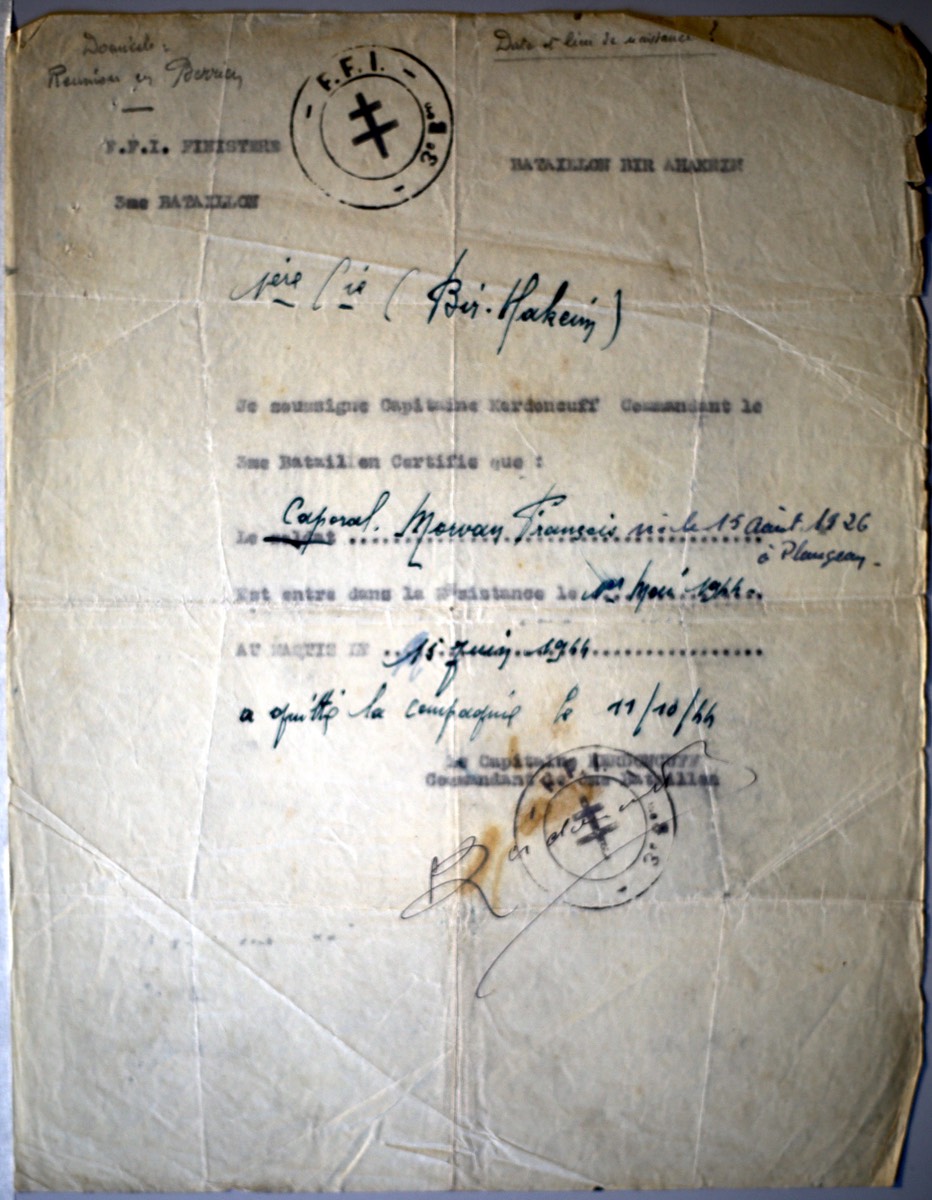 Domicile :
en Berrien
Date et lieu de naissance ?
F.F.I.
3e Bon
F.F.I. FINISTERE
BATAILLON BIR AHAKEIM
3me BATAILLON
1ère Cie ( Bir-Hakeim )
Je soussigne Capitaine Kerdoncuff Commandant le
3me Bataillon Certifie que :
Caporal. Morvan François né le 15 Août 1926
Le soldat ........................
à Plougean.
Est entre dans la résistance le 1er Mai 1944.
AU MAQUIS LE ..15 Juin 1944................
a quitté la compagnie le 11/10/44
Le Capitaine KERDONCUFF
Commandant le 3me Bataillon
F.F.I.
3e Bon
Kerdoncuff